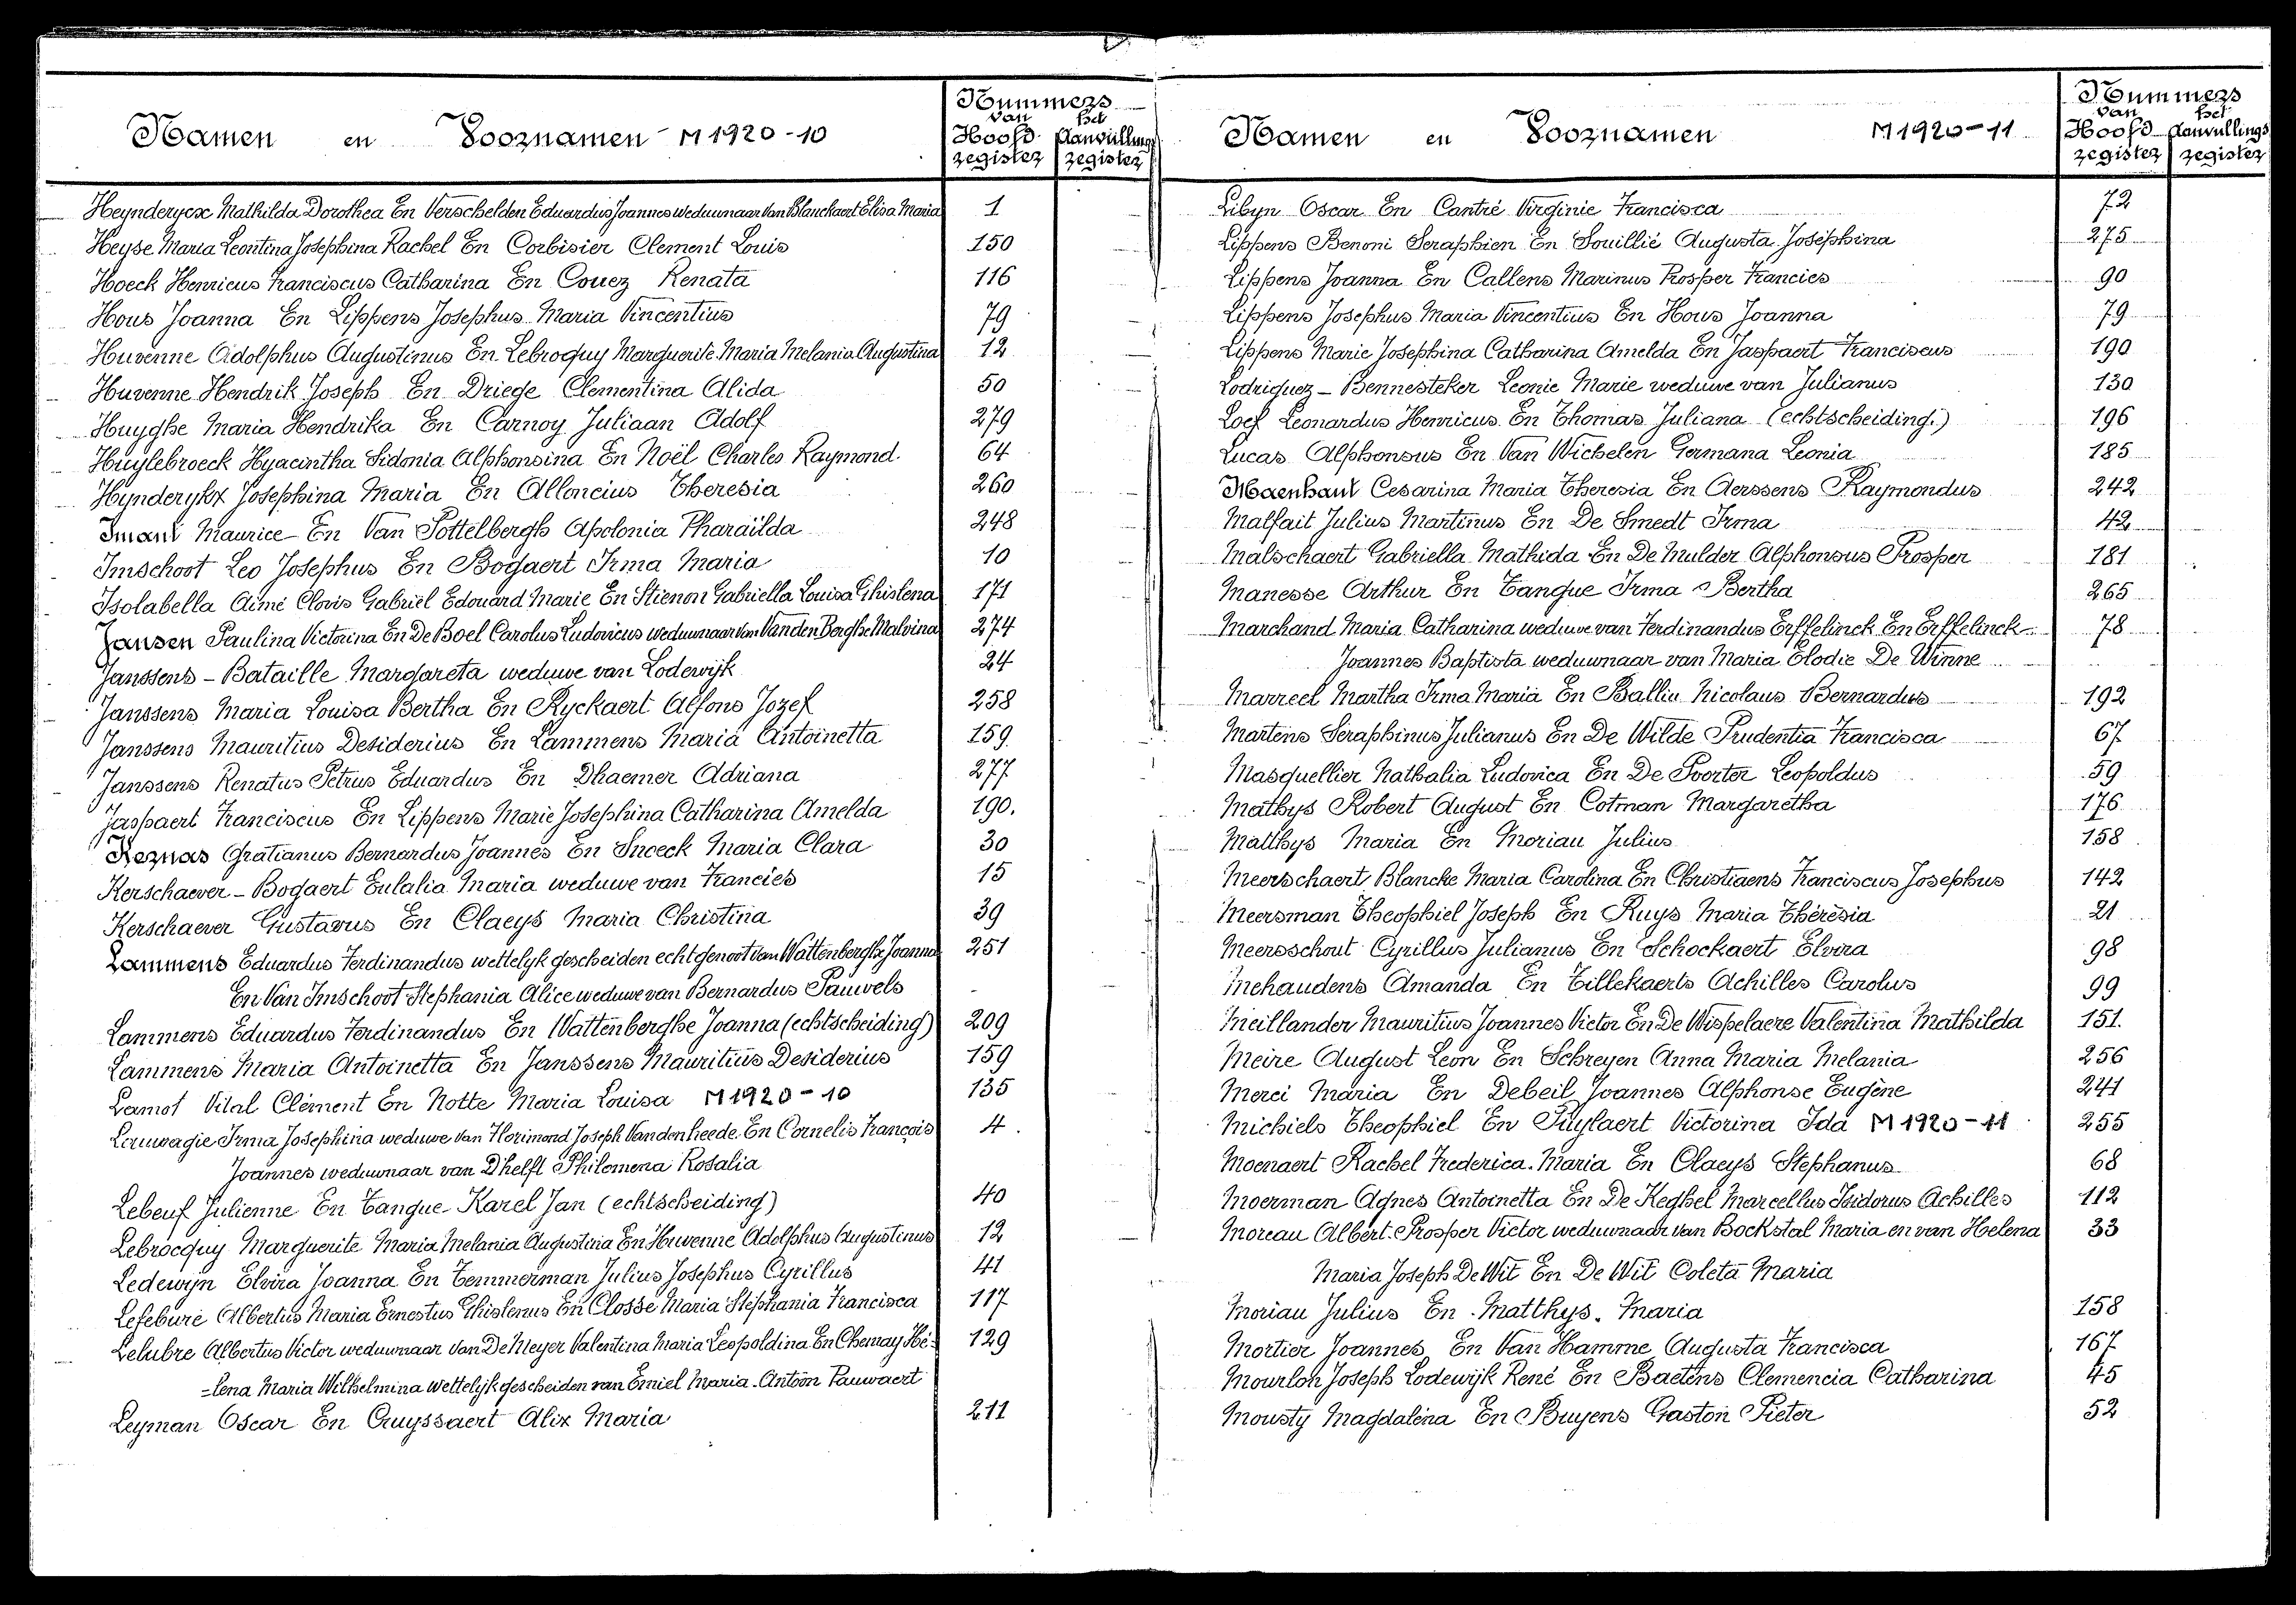 Namen en Voornamen - M1920-10
Nummers
van het
Hoofd Aanvullings
register register
Heynderycx Mathilda Dorothea En Verschelden Eduardus Joannes weduwnaar van Blanckaert Elisa Maria 1
Heyse Maria Leontina Josephina Rachel En Corbisier Clement Louis 150
Hoeck Henricus Franciscus Catharina En Couez Renata 116
Hous Joanna En Lippens Josephus Maria Vincentius 79
Huvenne Adolphus Augustinus En Lebrocquy Marguerite Maria Melania Augustina 12
Huvenne Hendrik Joseph En Driege Clementina Alida 50
Huyghe Maria Hendrika En Carnoy Juliaan Adolf 279
Huylebroeck Hyacintha Sidonia Alphonsina En Noël Charles Raymond. 64
Hynderykx Josephina Maria En Alloncius Theresia 260
Imant Maurice En Van Pottelbergh Apolonia Pharaïlda 248
Imschoot Leo Josephus En Bogaert Irma Maria 10
Isolabella Aimé Clovis Gabriël Edouard Marie En Stienon Gabriella Louisa Ghislena 171
Jansen Paulina Victorina En De Boel Carolus Ludovicus weduwnaar van Vanden Berghe Malvina 274
Janssens - Bataille Margareta weduwe van Lodewijk 24
Janssens Maria Louisa Bertha En Ryckaert Alfons Jozef 258
Janssens Mauritius Desiderius En Lammens Maria Antoinetta 159
Janssens Renatus Petrus Eduardus En Dhaemer Adriana 277
Jaspaert Franciscus En Lippens Marie Josephina Catharina Amelda 190.
Keznas Gratianus Bernardus Joannes En Snoeck Maria Clara 30
Kerschaever - Bogaert Eulalia Maria weduwe van Francies 15
Kerschaever Gustavus En Claeys Maria Christina 39
Lammens Eduardus Ferdinandus wettelyk gescheiden echtgenoot van Wattenberghe Joanna 251
En Van Imschoot Stephania Alice weduwe van Bernardus Pauwels -
Lammens Eduardus Ferdinandus En Wattenberghe Joanna (echtscheiding) 209
Lammens Maria Antoinetta En Janssens Mauritius Desiderius 159
Lamot Vital Clément En Notte Maria Louisa M1920-10 135
Lauwagie Irma Josephina weduwe van Florimond Joseph Vandenheede En Cornelis François 4.
Joannes weduwnaar van Dhelft Philomena Rosalia
Lebeuf Julienne En Tangue Karel Jan (echtscheiding) 40
Lebrocquy Marguerite Maria Melania Augustina En Huvenne Adolphus Augustinus 12
Ledewyn Elvira Joanna En Temmerman Julius Josephus Cyrillus 41
Lefebure Albertus Maria Ernestus Ghislenus En Closse Maria Stephania Francisca 117
Lelubre Albertus Victor weduwnaar van De Meyer Valentina Maria Leopoldina En Chemay Hé= 129
=lena Maria Wilhelmina wettelijk gescheiden van Emiel Maria Antoon Pauwaert
Leyman Oscar En Cruyssaert Alix Maria 211
Namen en Voornamen M1920-11
Nummers
van het
Hoofd Aanvullings
register register
Libyn Oscar En Cantré Virginie Francisca 72
Lippens Benoni Seraphien En Souillié Augusta Joséphina 275
Lippens Joanna En Callens Marinus Prosper Francies 90
Lippens Josephus Maria Vincentius En Hous Joanna 79
Lippens Marie Josephina Catharina Amelda En Jaspaert Franciscus 190
Lodriguez - Bennesteker Leonie Marie weduwe van Julianus 130
Loef Leonardus Henricus En Thomas Juliana (echtscheiding) 196
Lucas Alphonsus En Van Wichelen Germana Leonia 185
Maenhaut Cesarina Maria Theresia En Aerssens Raymondus 242
Malfait Julius Martinus En De Smedt Irma 42
Malschaert Gabriella Mathida En De Mulder Alphonsus Prosper 181
Manesse Arthur En Tangue Irma Bertha 265
Marchand Maria Catharina weduwe van Ferdinandus Erffelinck En Erffelinck 78
Joannes Baptista weduwnaar van Maria Elodie De Winne
Marreel Martha Irma Maria En Balliu Nicolaus Bernardus 192
Martens Seraphinus Julianus En De Wilde Prudentia Francisca 67
Masquellier Nathalia Ludovica En De Poorter Leopoldus 59
Mathys Robert August En Cotman Margaretha 176
Matthys Maria En Moriau Julius 158
Meerschaert Blancke Maria Carolina En Christiaens Franciscus Josephus 142
Meersman Theophiel Joseph En Ruys Maria Thérèsia 21
Meersschout Cyrillus Julianus En Schockaert Elvira 98
Mehaudens Amanda En Tillekaerts Achilles Carolus 99
Meillander Mauritius Joannes Victor En De Wispelaere Valentina Mathilda 151.
Meire August Leon En Schreyen Anna Maria Melania 256
Merci Maria En Debeil Joannes Alphonse Eugène 241
Michiels Theophiel En Puylaert Victorina Ida M1920-11 255
Moenaert Rachel Frederica Maria En Claeys Stephanus 68
Moerman Agnes Antoinetta En De Keghel Marcellus Isidorus Achilles 112
Moreau Albert Prosper Victor weduwnaar van Bockstal Maria en van Helena 33
Maria Joseph De Wit En De Wit Coleta Maria
Moriau Julius En Matthys Maria 158
Mortier Joannes En Van Hamme Augusta Francisca 167
Mourlon Joseph Lodewijk René En Baetens Clemencia Catharina 45
Mousty Magdaléna En Buyens Gaston Pieter 52